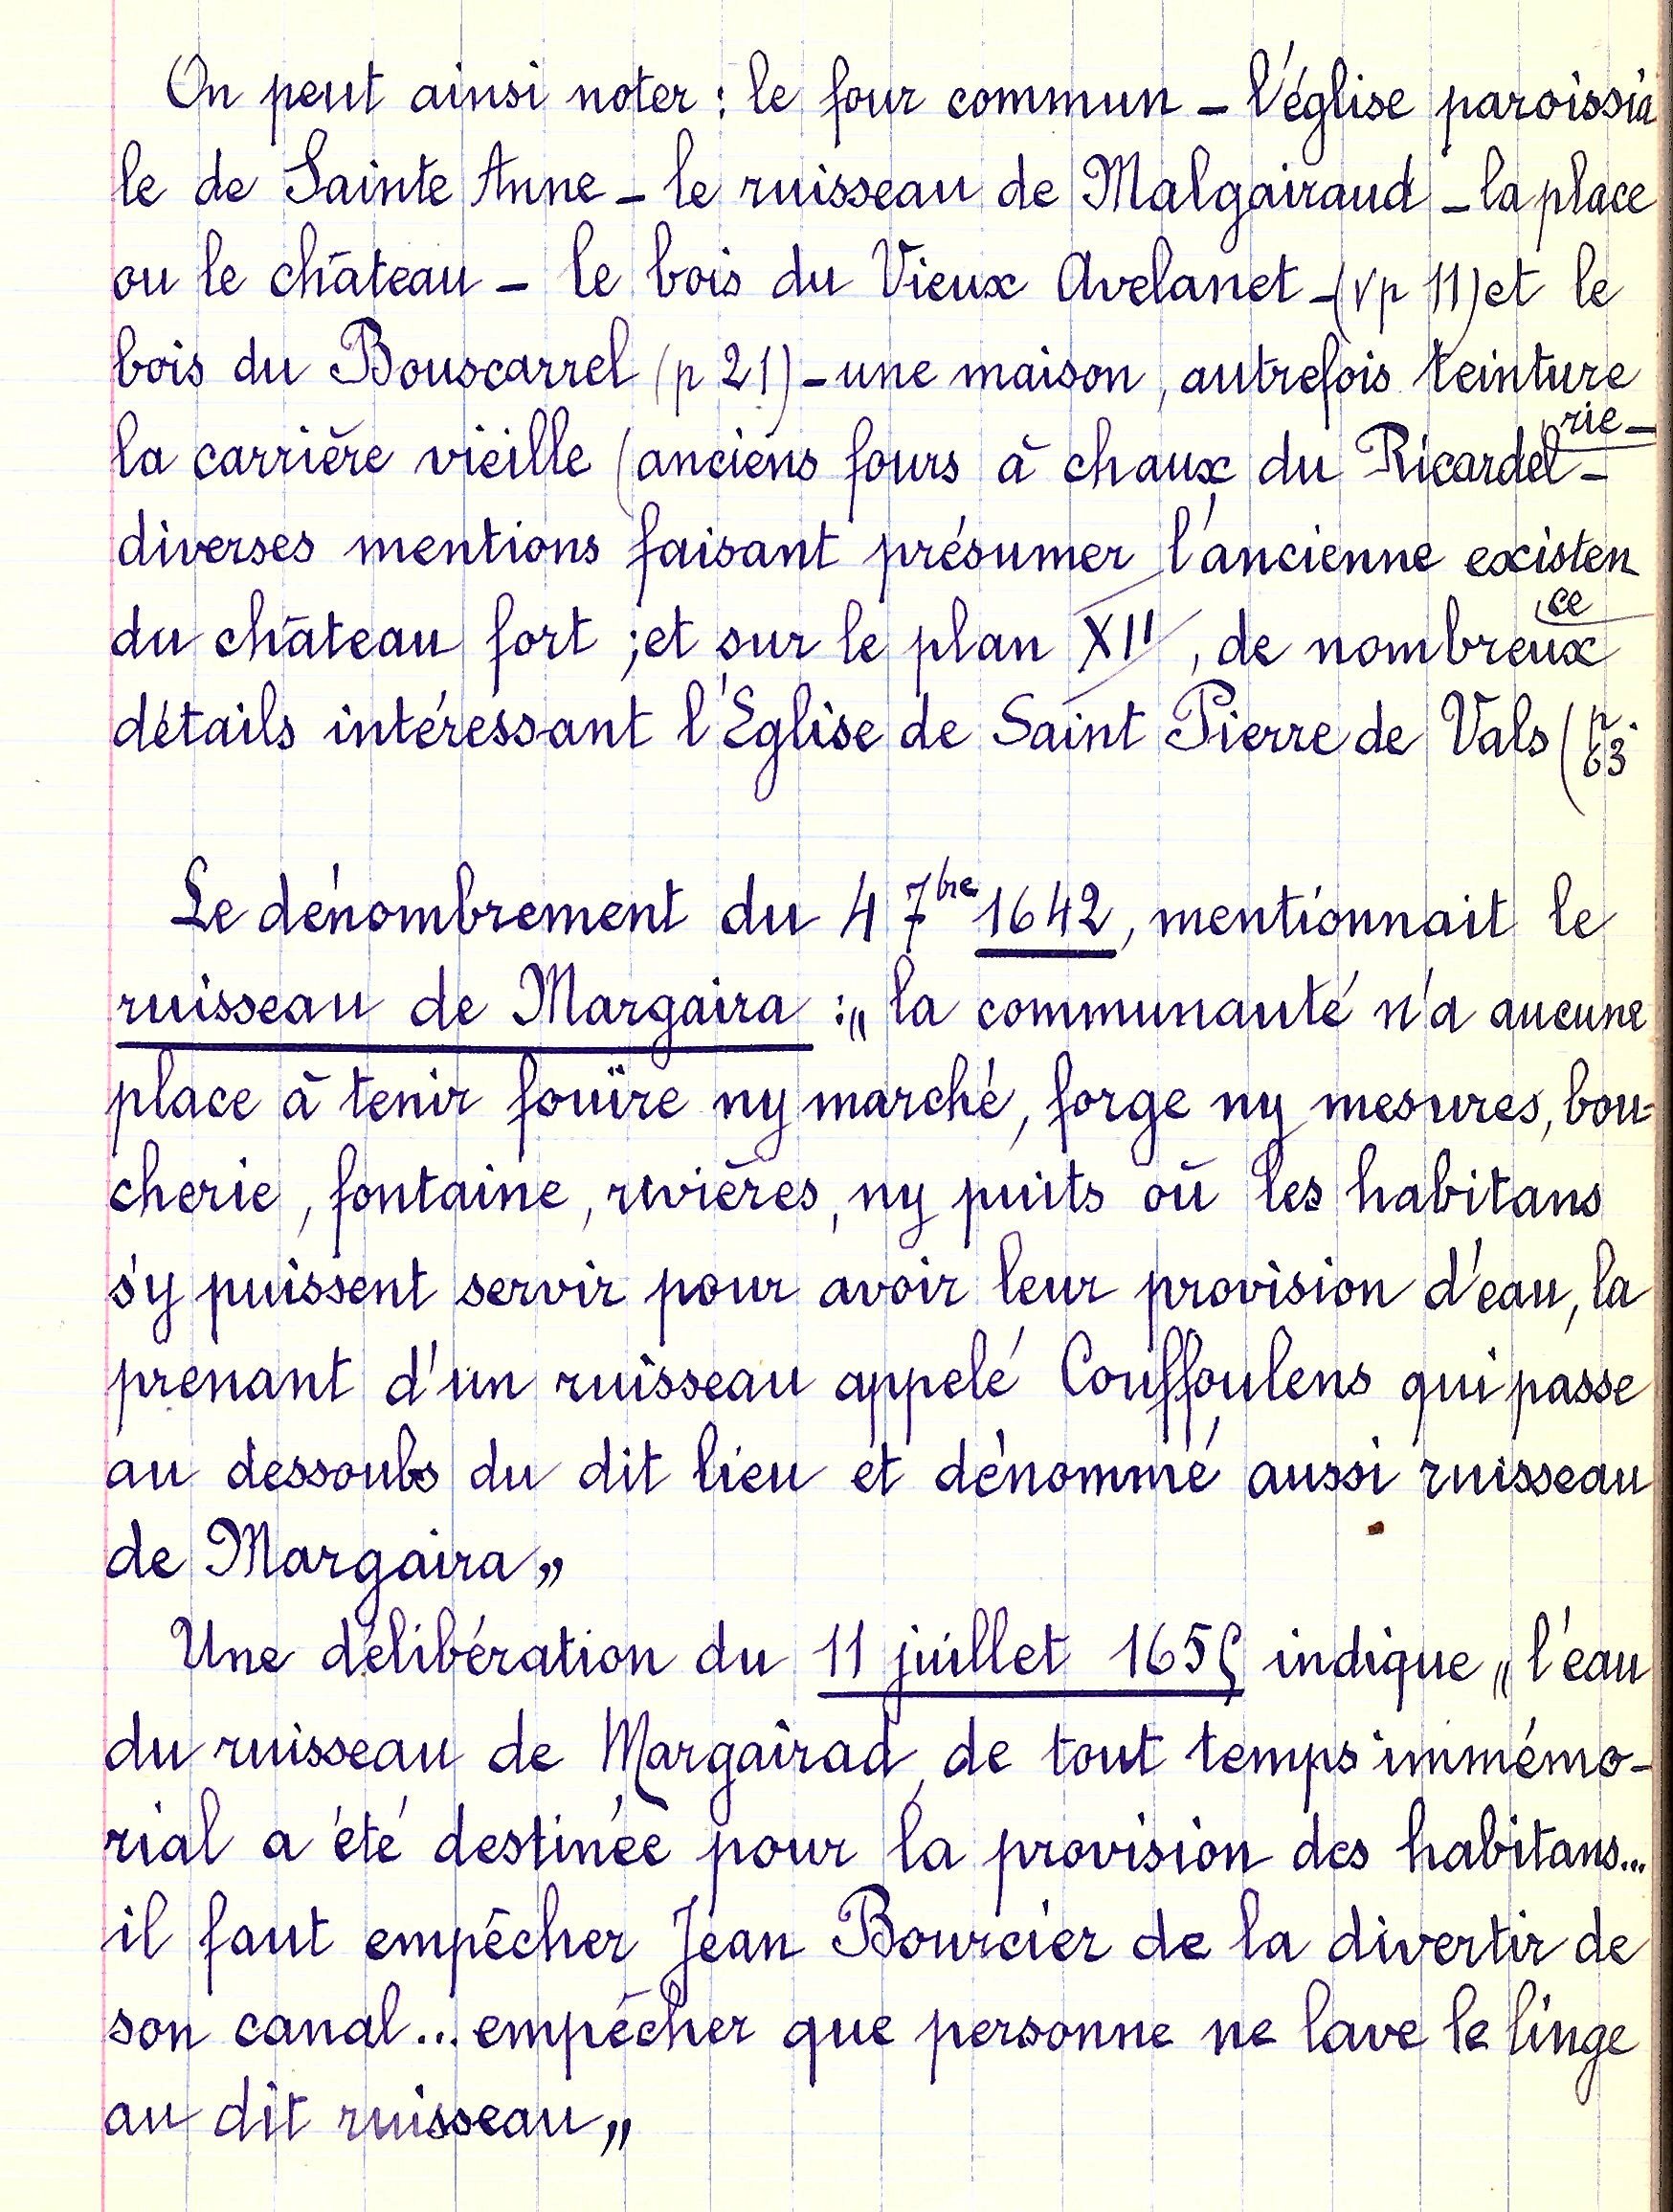 On peut ainsi noter : le four commun _ l'église paroissia
le de Sainte Anne _ le ruisseau de Malgairaud _ la place
ou le château _ le bois du Vieux Avelanet _ (v p 11) et le
bois du Bouscarrel (p 21) _ une maison, autrefois teinture
rie _
la carrière vieille (anciens fours à chaux du Ricardel _
diverses mentions faisant présumer l'ancienne existen
ce
du château fort ; et sur le plan XII, de nombreux
détails intéressant l'Eglise de Saint Pierre de Vals (p.
63
Le dénombrement du 4 7bre 1642, mentionnait le
ruisseau de Margaira : „ la communauté n'a aucune
place à tenir fouïre ny marché, forge ny mesures, bou-
cherie, fontaine, rivières, ny puits où les habitans
s'y puissent servir pour avoir leur provision d'eau, la
prenant d'un ruisseau appelé Couffoulens qui passe
au dessoubs du dit lieu et dénommé aussi ruisseau
de Margaira „
Une délibération du 11 juillet 165 indique „ l'eau
du ruisseau de Margairad, de tout temps immémo-
rial a été destinée pour la provision des habitans...
il faut empêcher Jean Bourcier de la divertir de
son canal... empêcher que personne ne lave le linge
au dit ruisseau „